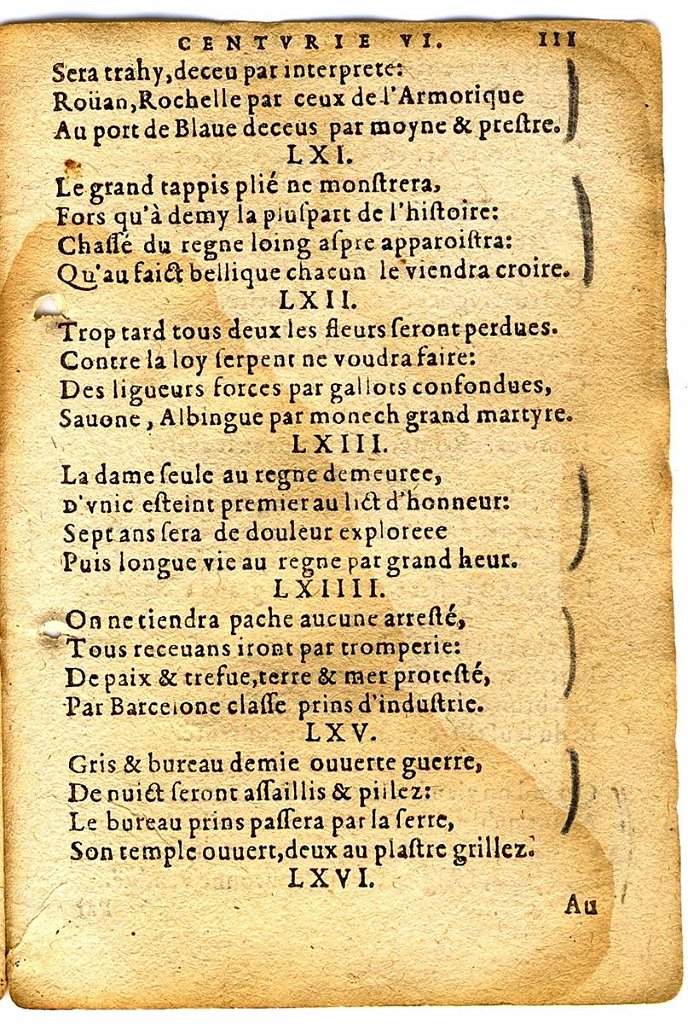 CENTVRIE VI. III
Sera trahy, deceu par interprete:
Roüan, Rochelle par ceux de l'Armorique
Au port de Blaue deceus par moyne & preſtre.
LXI.
Le grand tappis plié ne monſtrera,
Fors qu'à demy la pluſpart de l'hiſtoire:
Chaſſé du regne loing aſpre apparoiſtra:
Qu'au faict bellique chacun le viendra croire.
LXII.
Trop tard tous deux les fleurs ſeront perdues.
Contre la loy ſerpent ne voudra faire:
Des ligueurs forces par gallots confondues,
Sauone, Albingue par monech grand martyre.
LXIII.
La dame ſeule au regne demeuree,
D'vnic eſteint premier au lict d'honneur:
Sept ans ſera de douleur exploree
Puis longue vie au regne par grand heur.
LXIIII.
On ne tiendra pache aucune arreſté,
Tous receuans iront par tromperie:
De paix & trefue, terre & mer proteſté,
Par Barcelone claſſe prins d'induſtrie.
LXV.
Gris & bureau demie ouuerte guerre,
De nuict ſeront aſſaillis & pillez:
Le bureau prins paſſera par la ſerre,
Son temple ouuert, deux au plaſtre grillez.
LXVI.
Au